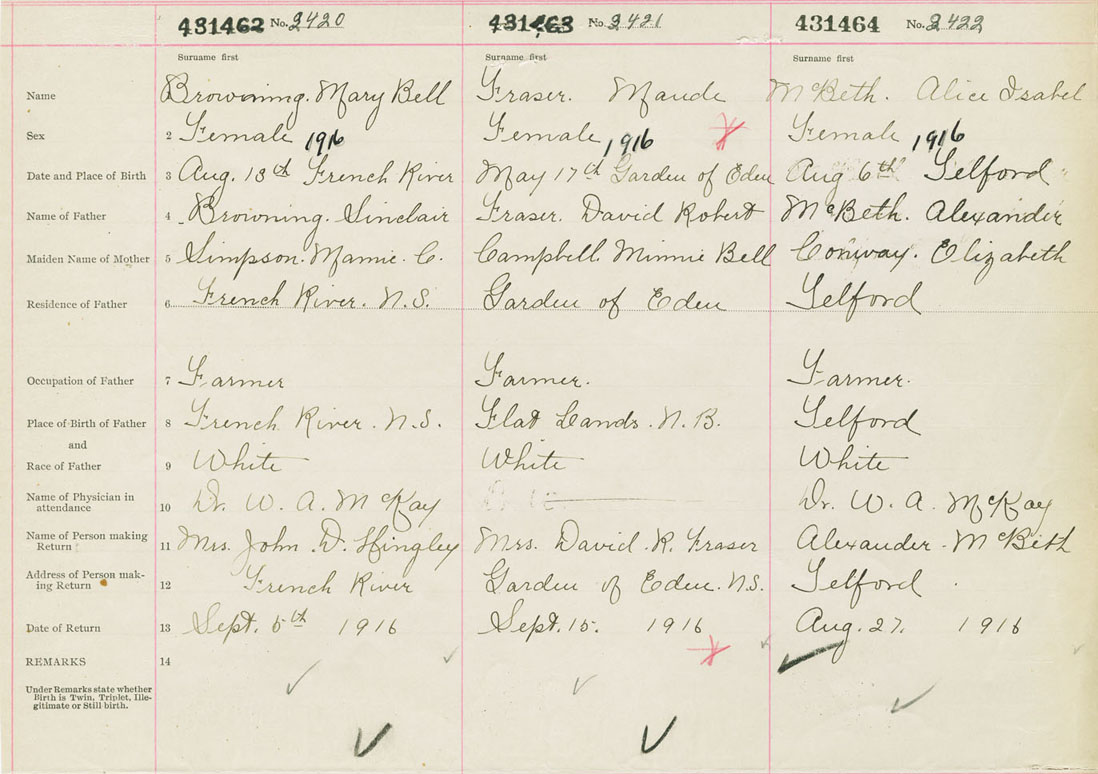 431462 No. 2420 431463 No. 2421 431464 No. 2422
Surname first Surname first Surname first
Name Browning. Mary Bell Fraser. Maude McBeth. Alice Isabel
Sex 2 Female 1916 Female 1916 Female 1916
Date and Place of Birth 3 Aug. 13th French River May 17th Garden of Eden Aug 6th Telford
Name of Father 4 Browning. Sinclair Fraser. David Robert McBeth. Alexander
Maiden Name of Mother 5 Simpson. Mamie. C. Campbell. Minnie Bell Conway. Elizabeth
Residence of Father 6 French River. N.S. Garden of Eden Telford
Occupation of Father 7 Farmer Farmer. Farmer.
Place of Birth of Father 8 French River. N.S. Flat Lands. N.B. Telford
and
Race of Father 9 White White White
Name of Physician in
attendance 10 Dr. W. A. McKay Dr. W. A. McKay
Name of Person making
Return 11 Mrs. John D. Hingley Mrs. David. R. Fraser Alexander. McBeth
Address of Person mak-
ing Return 12 French River Garden of Eden. N.S. Telford.
Date of Return 13 Sept. 5th 1916 Sept. 15. 1916 Aug. 27. 1916
REMARKS 14
Under Remarks state whether
Birth is Twin, Triplet, Ille-
gitimate or Still birth.